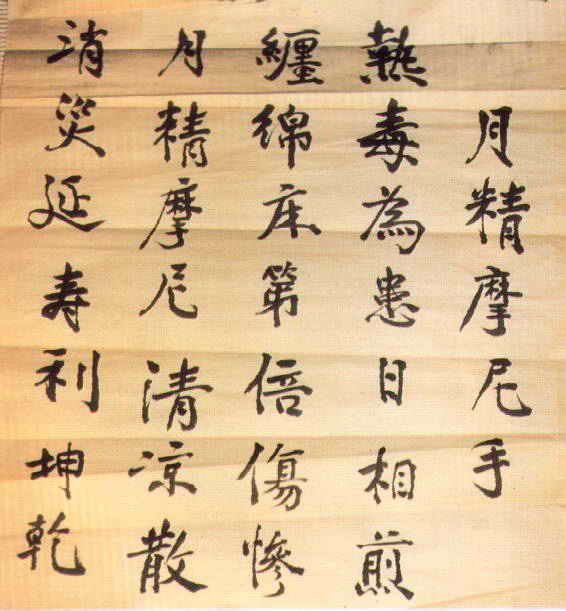 月精摩尼手
熱毒為患日相煎
纏綿床第倍傷慘
月精摩尼清凉散
消災延寿利坤乾